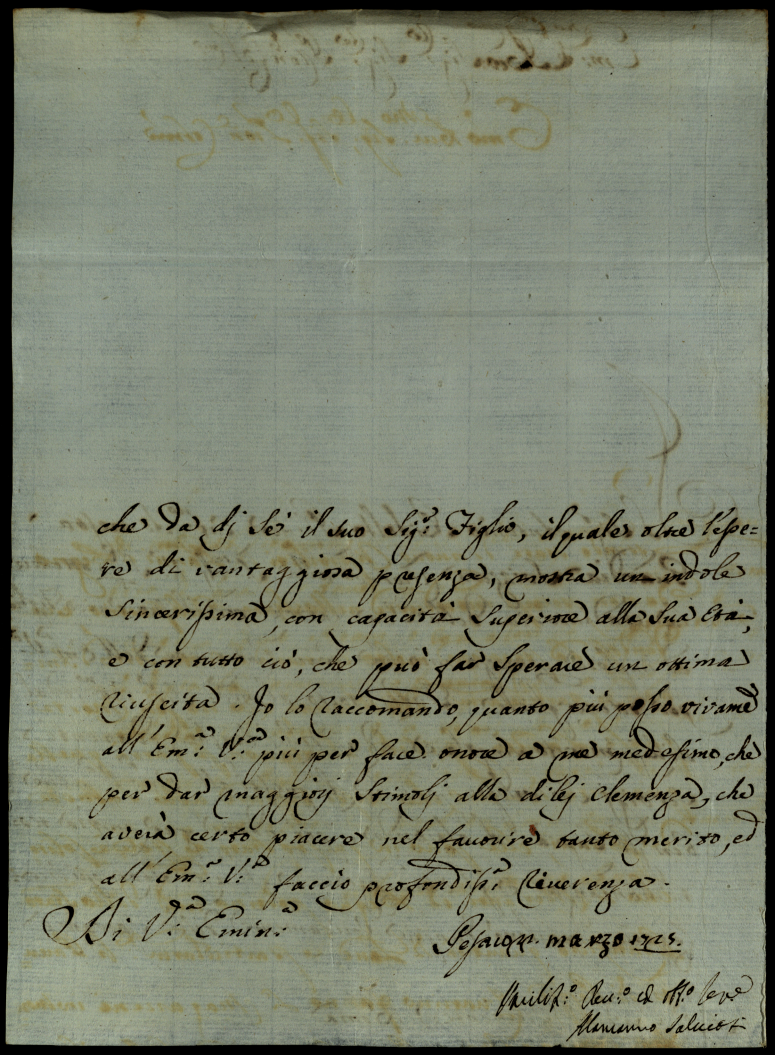 che da dj sè il suo Sig.r Figlio, il quale oltre l'esse=
re di vantaggiosa presenza, mostra un indole
Sincerissima, con capacità Superiore alla Sua Età,
e con tutto ciò, che può far Sperare un ottima
riuscita. Io lo raccomando, quanto più posso vivam.e
all' Em.a V.a più per fare onore a me medesimo, che
per dar maggiorj Stimolj alla dilej Clemenza, che
averà certo piacere nel favorire tanto merito, ed
all' Em.a V.a faccio profondiss.a riverenza.
Di V.a Emin.a
Pesaro marzo 1725.
Umiliss.o Dev.o ed Obb.o Serv.e